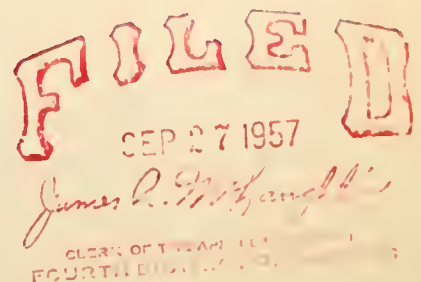 FILED
SEP 27 1957
James R. McLaughlin
CLERK OF THE
FOURTH